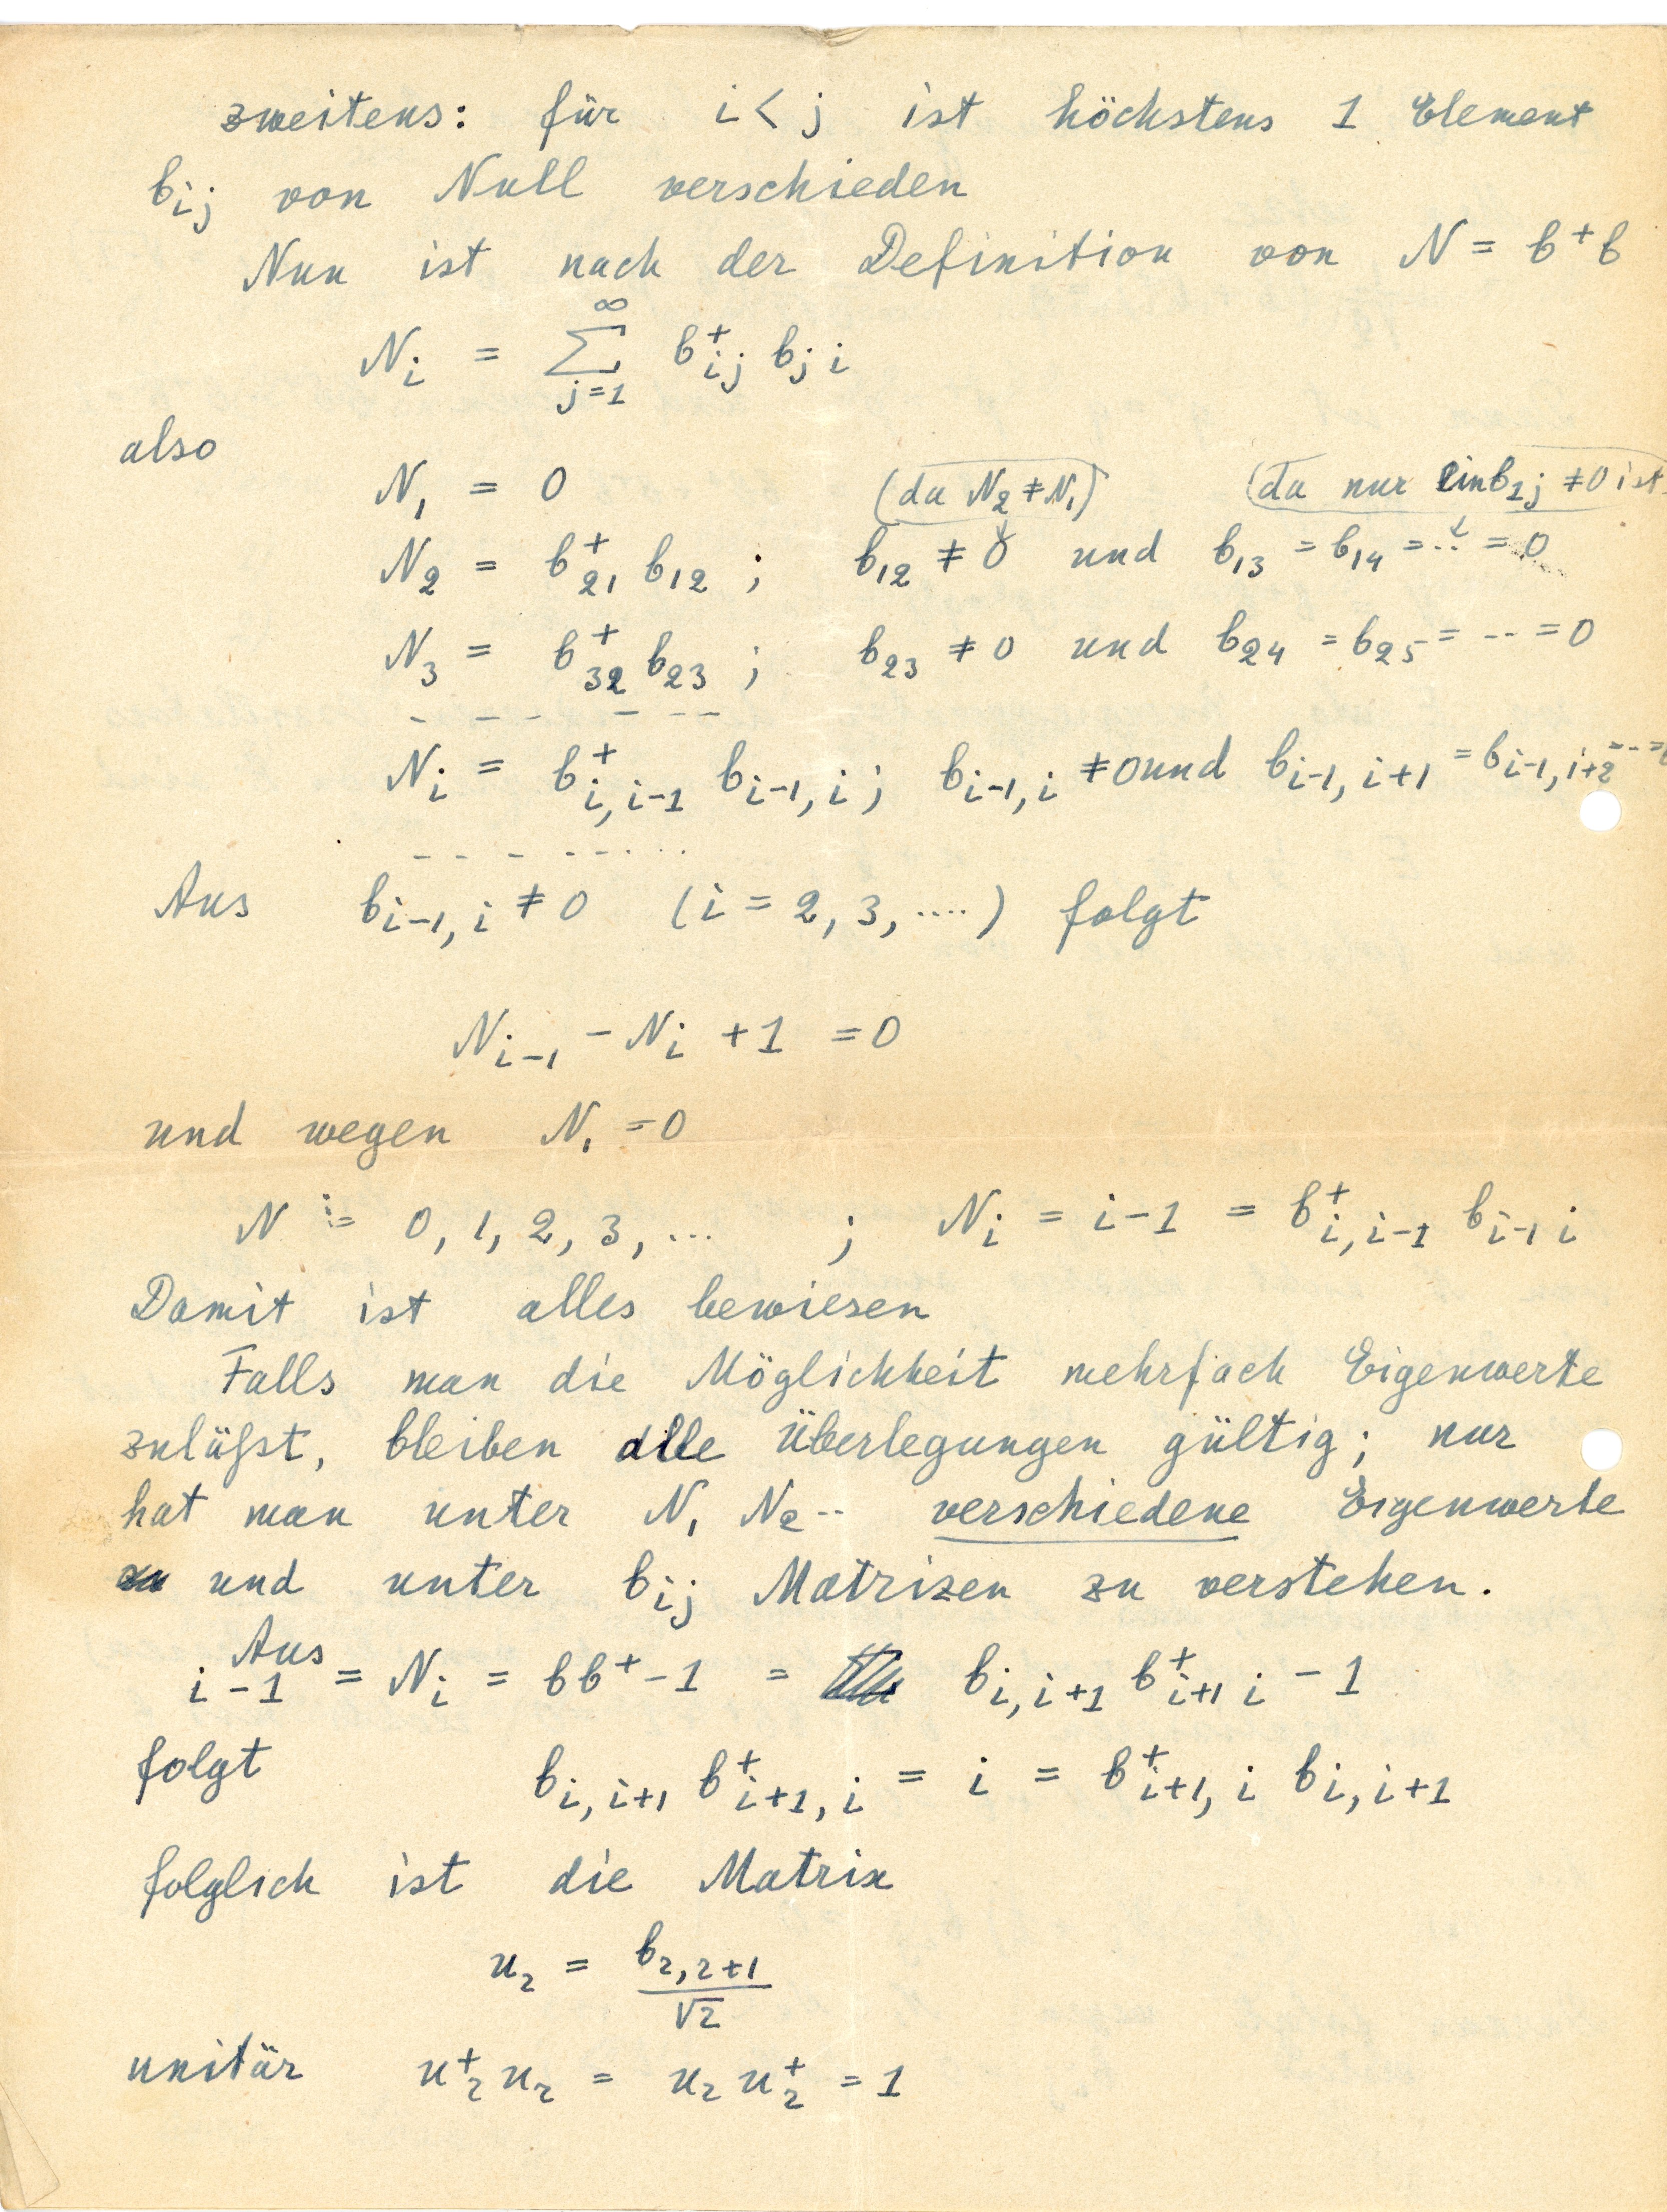 zweitens: für i < j ist höchstens 1 Element
b_{ij} von Null verschieden
Nun ist nach der Definition von N = b^+ b
N_i = \sum_{j=1}^{\infty} b^+_{ij} b_{ji}
also
N_1 = 0 (da N_2 ≠ N_1) (da nur ein b_{1j} ≠ 0 ist
N_2 = b^+_{21} b_{12} ; b_{12} ≠ 0 und b_{13} = b_{14} = ... = 0
N_3 = b^+_{32} b_{23} ; b_{23} ≠ 0 und b_{24} = b_{25} = -- = 0
- -- - - --
N_i = b^+_{i,i-1} b_{i-1,i} ; b_{i-1,i} ≠ 0 und b_{i-1,i+1} = b_{i-1,i+2} = -- =
- - - - - - . . .
Aus b_{i-1,i} ≠ 0 (i = 2, 3, ....) folgt
N_{i-1} - N_i + 1 = 0
und wegen N_1 = 0
N_i = 0, 1, 2, 3, ... ; N_i = i-1 = b^+_{i,i-1} b_{i-1 i}
Damit ist alles bewiesen
Falls man die Möglichkeit mehrfach Eigenwerte
zuläßt, bleiben alle Überlegungen gültig; nur
hat man unter N_1 N_2 -- verschiedene Eigenwerte
und unter b_{ij} Matrizen zu verstehen.
Aus
i-1 = N_i = b b^+ - 1 = b_{i,i+1} b^+_{i+1 i} - 1
folgt b_{i,i+1} b^+_{i+1,i} = i = b^+_{i+1,i} b_{i,i+1}
folglich ist die Matrix
u_r = \frac{b_{r,r+1}}{\sqrt{r}}
unitär u^+_r u_r = u_r u^+_r = 1